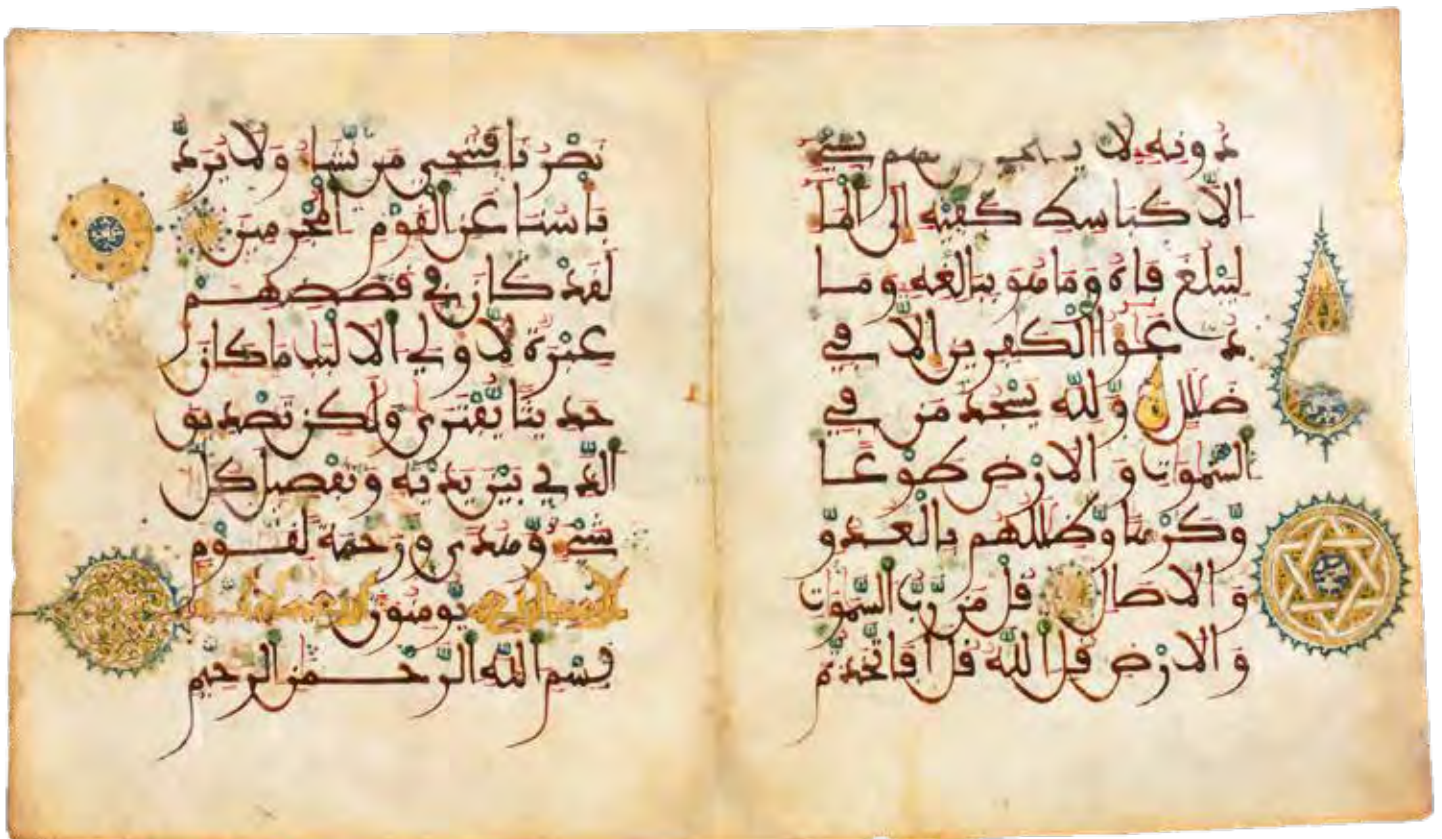 دونه لا لهم بشىء
الا كبسط كفيه الى الما
ليبلغ فاه وما هو ببالغه وما
دعوا الكفرين الا في
ضلل ولله يسجد من في
السموت والارض طوعا
وكرها وظللهم بالغدو
والاصال قل من رب السموت
والارض قل الله قل افاتخذتم
نصرنا فننجي من نشاء ولا يرد
باسنا عن القوم المجرمين
لقد كان في قصصهم
عبرة لاولي الالبب ما كان
حديثا يفترى ولكن تصديق
الذي بين يديه وتفصيل كل
شىء وهدى ورحمة لقوم
يومنون
بسم الله الرحمن الرحيم